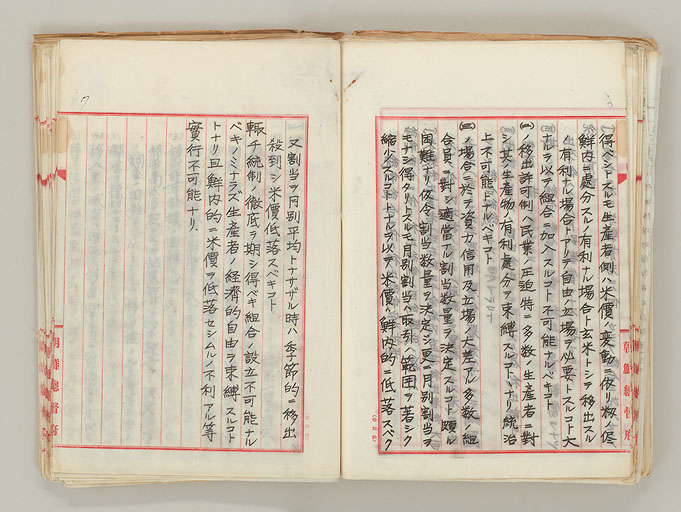 得ベシトスルモ生産者側ハ米價ノ変動ニ依リ籾ノ儘
鮮内ニ處分スルノ有利ナル場合ト玄米トシテ移出スル
ノ有利ナル場合トアリテ自由ノ立場ヲ必要トスルコト大
ナルヲ以テ組合ニ加入スルコト不可能ナルベキコト
(二)移出許可制ハ民業ノ圧迫特ニ多数ノ生産者ニ對
シ其ノ生産物ノ有利處分ヲ束縛スルコトヽナリ統治
上不可能トナルベキコト
(三)ノ場合ニ於テ資力信用及立場ノ大差アル多数ノ組
合員ニ對シ適當ナル割当数量ヲ決定スルコト頗ル
困難ナリ仮令割当数量ヲ決定シ更ニ月別割当ヲ
モナシ得タリトスルモ月別割当ハ取引ノ範囲ヲ著シク
縮少スルコトトナルヲ以テ米價ハ鮮内的ニ低落スベク
朝鮮總督府
7
又割当ヲ月別平均トナサザル時ハ季節的ニ移出
殺到シ米價低落スベキコト
輙チ統制ノ徹底ヲ期シ得ベキ組合ノ設立不可能ナル
ベキノミナラズ生産者ノ経済的自由ヲ束縛スルコト
トナリ且鮮内的ニ米價ヲ低落セシムルノ不利アル等
實行不可能ナリ
朝鮮總督府